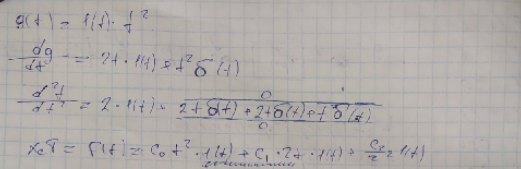 g(t) = 1(t) · t²
dg/dt = 2t · 1(t) + t² δ(t)
d²g/dt² = 2 · 1(t) + 2t δ(t) + 2t δ(t) + t² δ(t)
0
0
= r(t) = C₀ t² · 1(t) + C₁ · 2t · 1(t) + C₂/2 2 1(t)